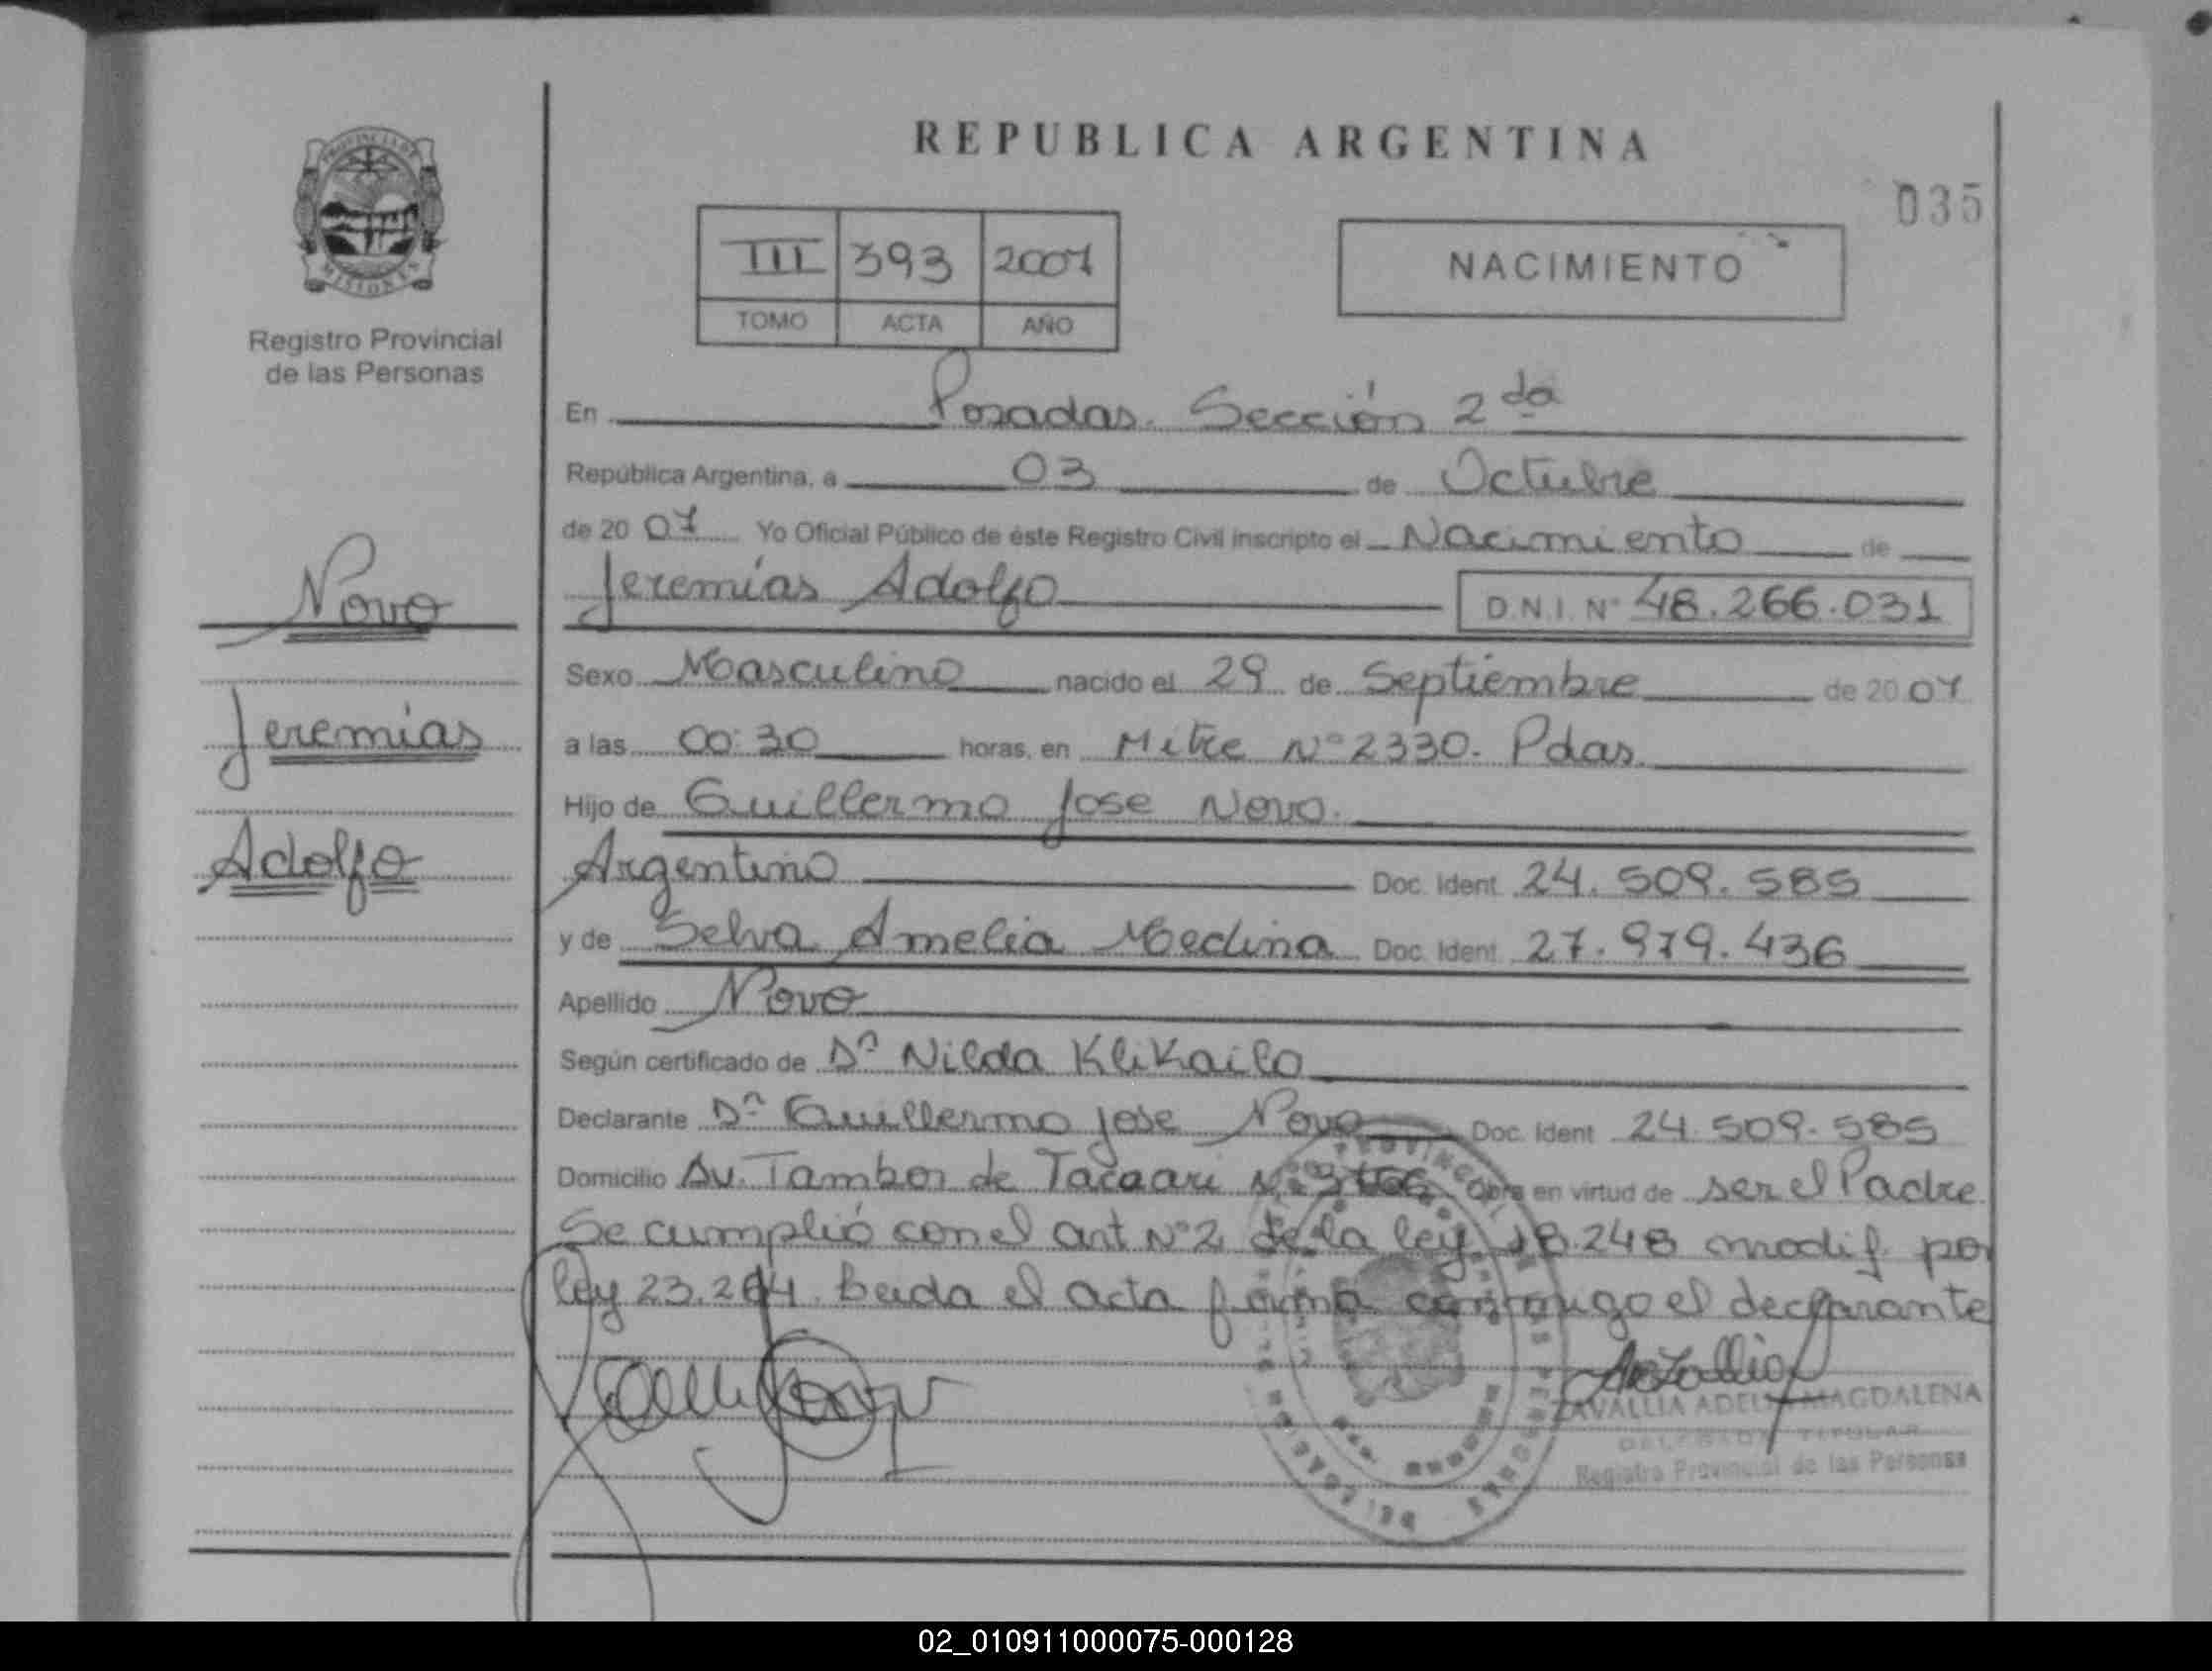 REPUBLICA ARGENTINA
035
PROVINCIA DE
MISIONES
Registro Provincial
de las Personas
III 393 2007
TOMO ACTA AÑO
NACIMIENTO
En Posadas. Sección 2da
República Argentina, a 03 de Octubre
de 20 07 Yo Oficial Público de éste Registro Civil inscripto el Nacimiento de
Novo
Jeremías Adolfo D.N.I. Nº 48.266.031
Sexo Masculino nacido el 29 de Septiembre de 20 07
Jeremías
a las 00:30 horas, en Mitre Nº 2330. Pdas.
Hijo de Guillermo Jose Novo.
Adolfo
Argentino Doc. Ident. 24.509.585
y de Selva Amelia Medina Doc. Ident. 27.979.436
Apellido Novo
Según certificado de Dª Nilda Klikailo
Declarante Dn Guillermo Jose Novo Doc. Ident 24.509.585
Domicilio Av. Tambor de Tacaari Nº Obra en virtud de ser el Padre
Se cumplió con el art Nº 2 de la ley 18.248 modif. por
ley 23.264. Leida el acta firma conmigo el declarante
ZAVALLIA ADELA MAGDALENA
DELEGADA TITULAR
Registro Provincial de las Personas
02_010911000075-000128